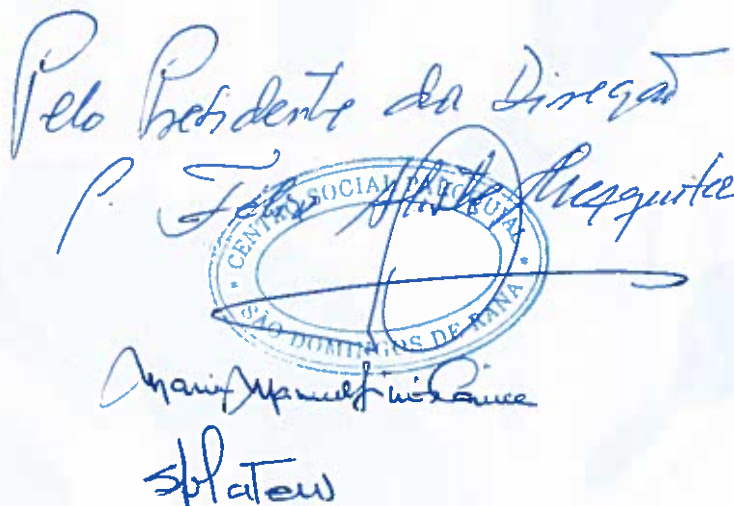 Pelo Presidente da Direção
P. Mesquita
CENTRO SOCIAL PAROQUIAL
* SÃO DOMINGOS DE RANA *
Maria Manuel